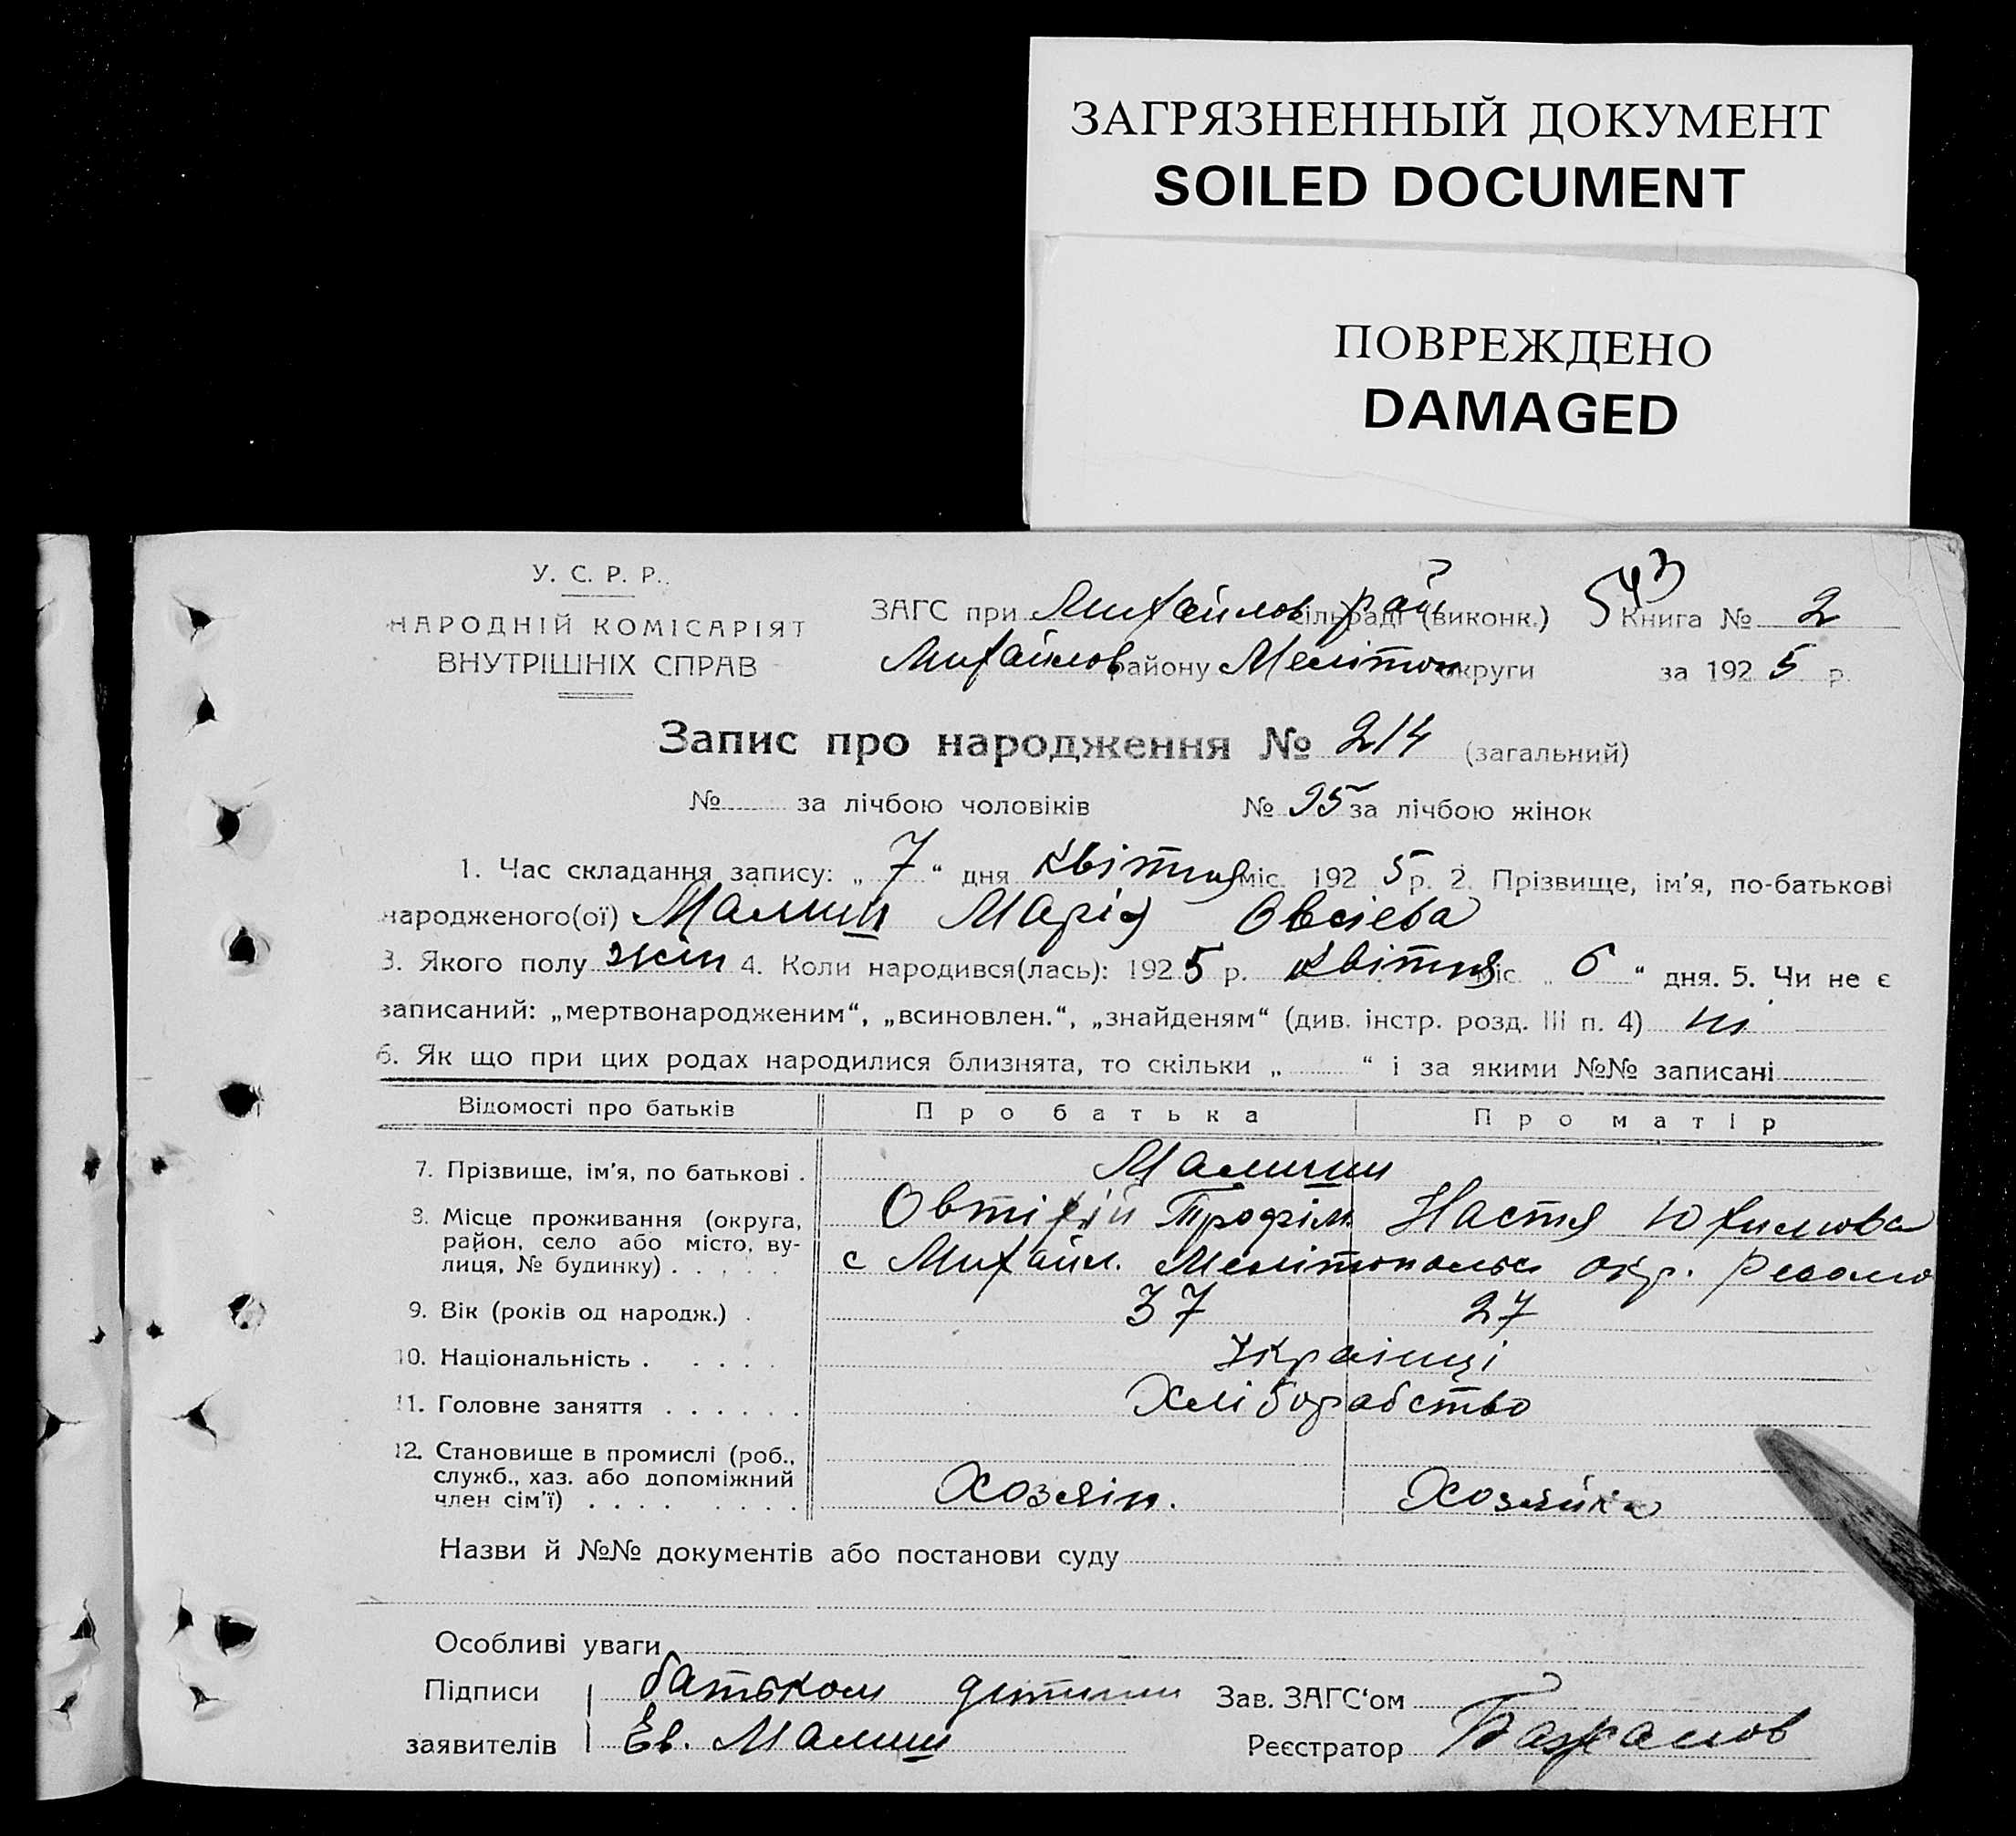 ЗАГРЯЗНЕННЫЙ ДОКУМЕНТ
SOILED DOCUMENT
ПОВРЕЖДЕНО
DAMAGED
543
У. С. Р. Р.
НАРОДНІЙ КОМІСАРІЯТ
ВНУТРІШНІХ СПРАВ
ЗАГС при Михайлов рай сільраді (виконк.) Книга № 2
Михайлов району Мелітоп округи за 1925 р.
Запис про народження № 214 (загальний)
№ за лічбою чоловіків № 95 за лічбою жінок
1. Час складання запису: „ 7 “ дня квітня міс. 1925 р. 2. Прізвище, ім'я, по-батькові
народженого(ої) Малиш Марія Овсієва
3. Якого полу жін 4. Коли народився(лась): 1925 р. квітня міс. „ 6 “ дня. 5. Чи не є
записаний: „мертвонародженим“, „всиновлен.“, „знайденям“ (див. інстр. розд. III п. 4) ні
6. Як що при цих родах народилися близнята, то скільки „ “ і за якими №№ записані
Відомості про батьків Про батька Про матір
7. Прізвище, ім'я, по батькові .
8. Місце проживання (округа, район, село або місто, вулиця, № будинку) . . . . .
Овтіхій Трофім Настя Юхимова
с Михайл. Мелітопольск окр.
9. Вік (років од народж.) . 37 27
10. Національність . . . . . Українці
11. Головне заняття . . . . . . Хліборабство
12. Становище в промислі (роб.,
служб., хаз. або допоміжний
член сім'ї) . . . . . . . . Хозяін. Хозяйка
Назви й №№ документів або постанови суду
Особливі уваги
Підписи батьком дитини Зав. ЗАГС'ом
заявителів Ев. Малиш Реєстратор Бажанов